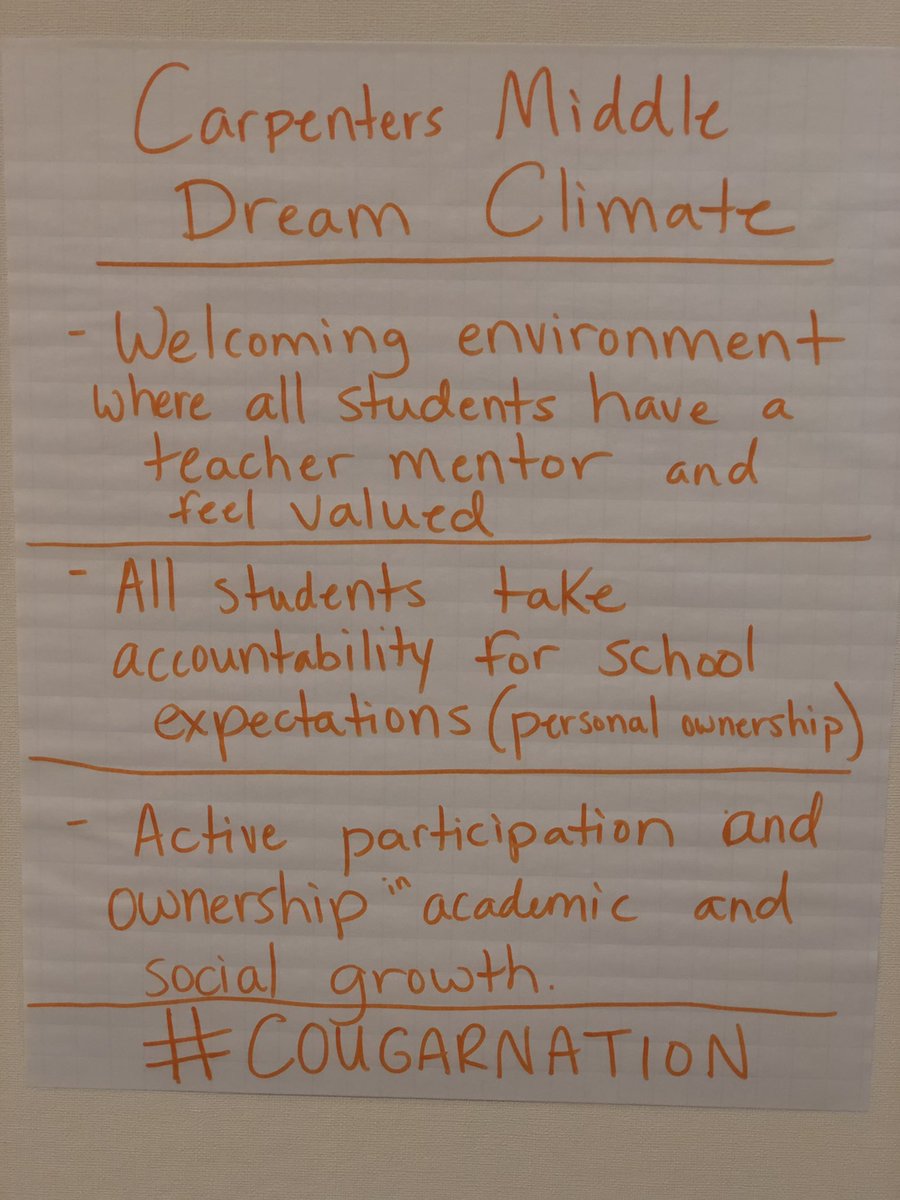 Carpenters Middle
Dream Climate
- Welcoming environment
where all students have a
teacher mentor and
feel valued
- All students take
accountability for school
expectations (personal ownership)
- Active participation and
ownership in academic and
social growth.
#COUGARNATION